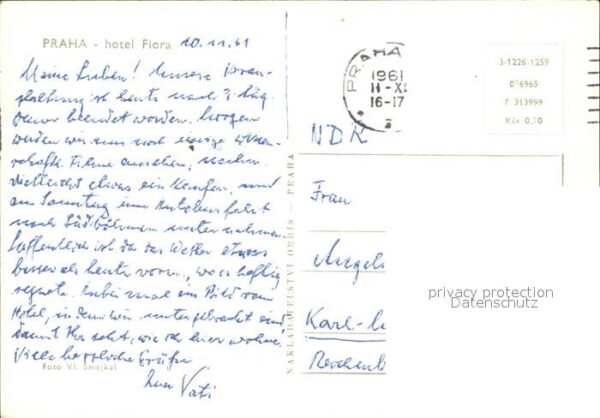 PRAHA - hotel Flora 10.11.61
Meine Lieben! Unsere Veran-
staltung ist heute nach 3 täg.
Dauer beendet worden. Morgen
werden wir uns noch einige wissen-
schaftl. Filme ansehen, nachm.
vielleicht etwas einkaufen, und
am Sonntag eine Autobusfahrt
nach Südböhmen unternehmen.
Hoffentlich ist da das Wetter etwas
besser als heute vorm., wo es heftig
regnete. Anbei mal ein Bild vom
Hotel, in dem wir untergebracht sind,
damit Ihr seht, wie ich hier wohne.
Viele herzliche Grüße
Euer Vati
Foto Vl. Smejkal
NAKLADATELSTVÍ ORBIS - PRAHA
PRAHA
1961
11-XI
16-17
3-1226-1259
076965
F 313999
Kčs 0,70
NDR
Frau
Angel
Karl-
privacy protection
Datenschutz